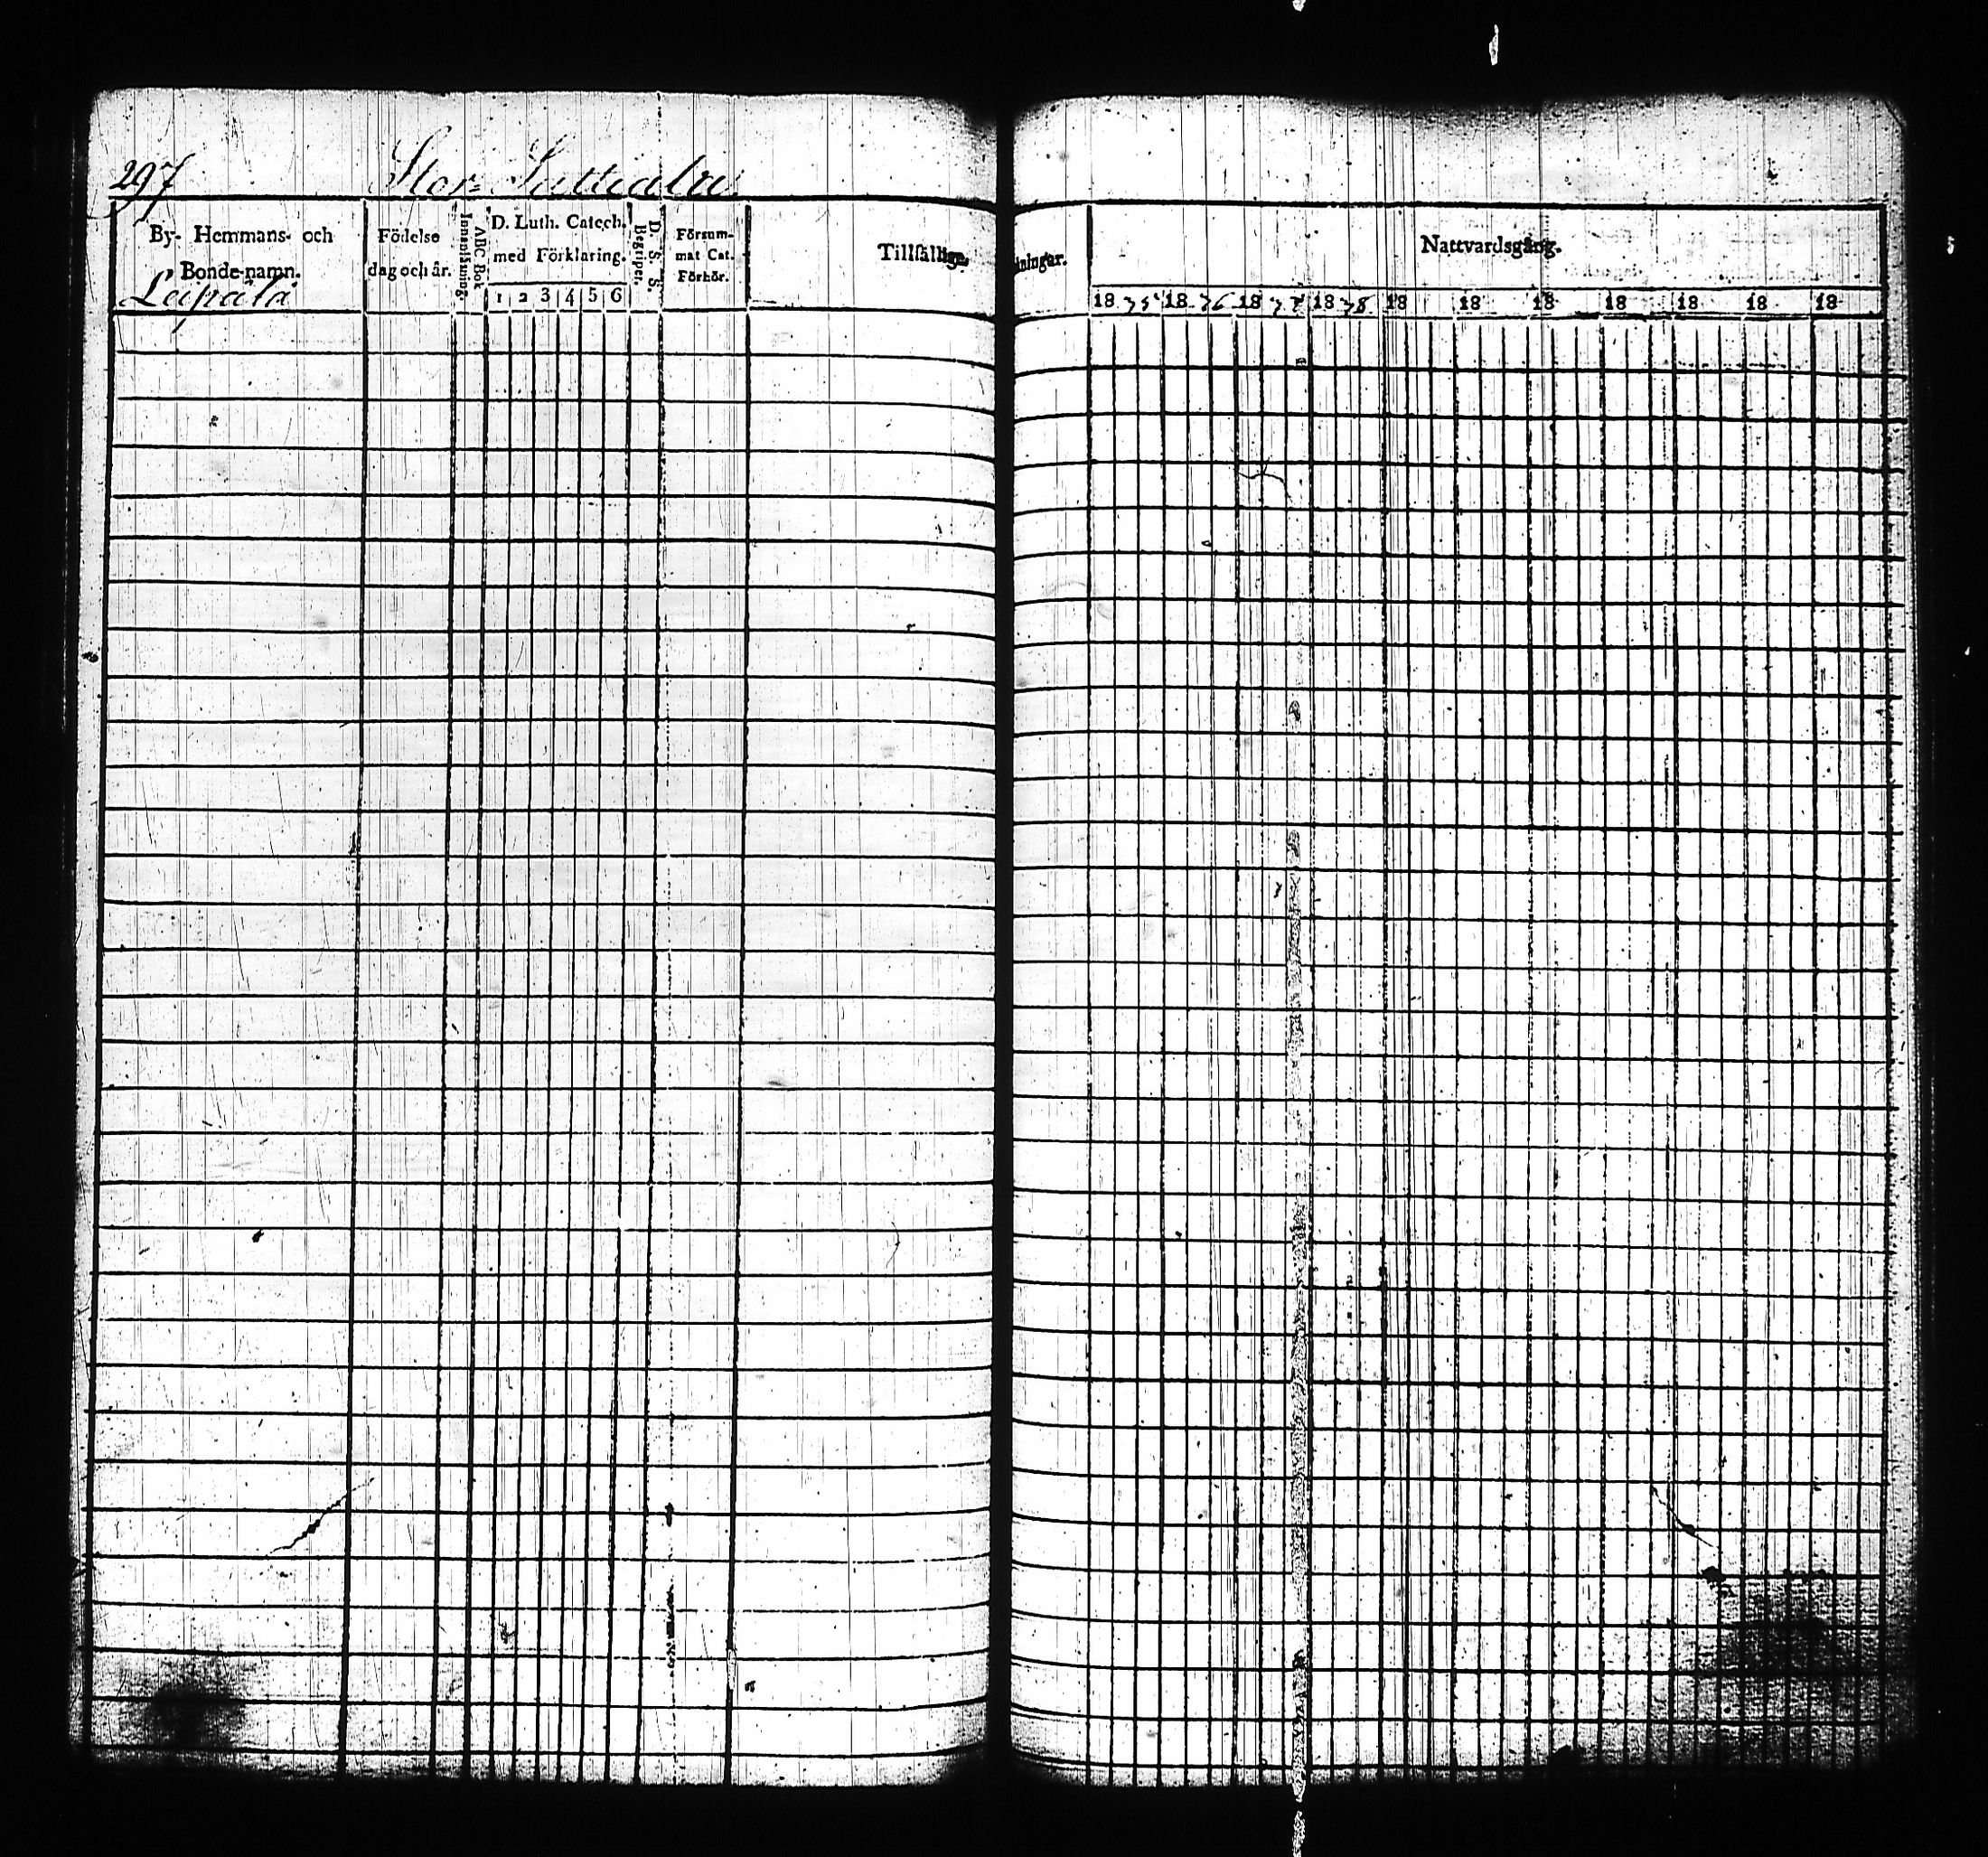 297 Stor-Sattiala
By- Hemmans- och Bonde-namn.
Leipala
Födelse dag och år.
Innanläsning.
ABC Bok
D. Luth. Catech. med Förklaring.
1 2 3 4 5 6
D. S. S. Begriper.
Försummat Cat. Förhör.
Tillfällige
ningar.
Nattvardsgång.
18 75 18 76 18 77 18 78 18 18 18 18 18 18 18